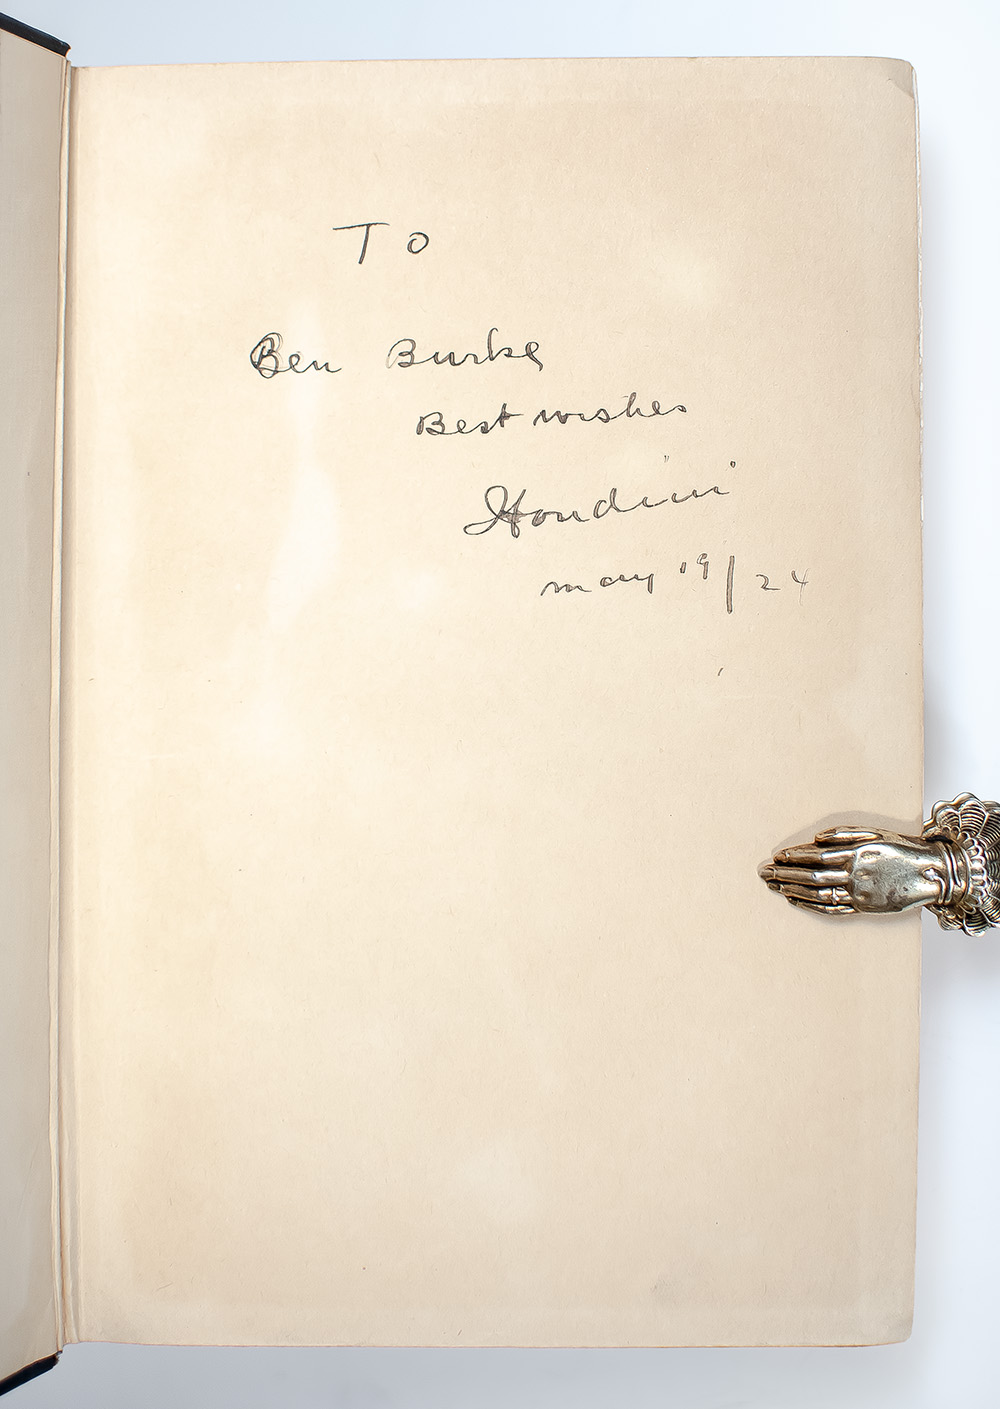 TO
Ben Burke
Best wishes
Houdini
may 19/24